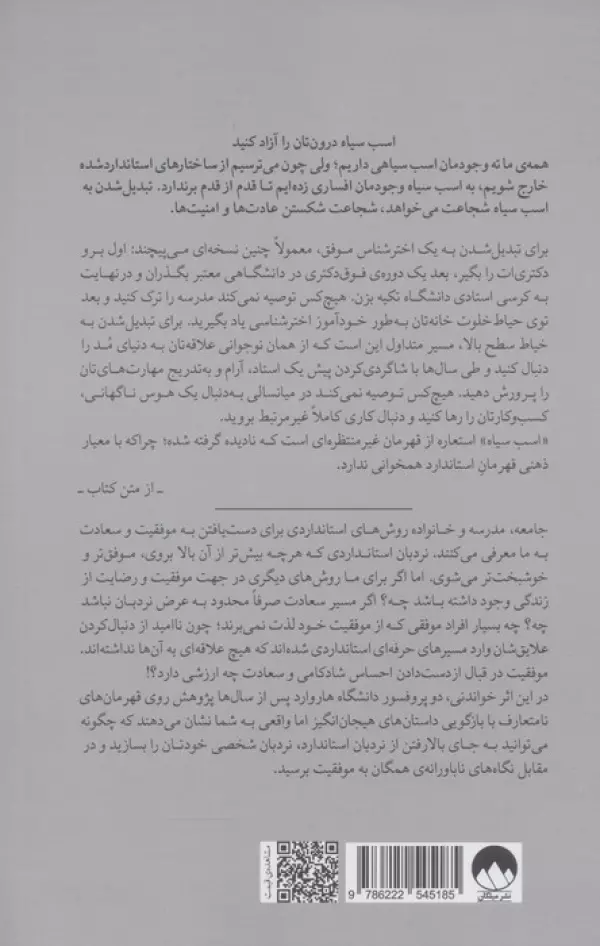 اسب سیاه درون‌تان را آزاد کنید
همه‌ی ما ته وجودمان اسب سیاهی داریم؛ ولی چون می‌ترسیم از ساختارهای استانداردشده
خارج شویم، به اسب سیاه وجودمان افساری زده‌ایم تا قدم از قدم برندارد. تبدیل‌شدن به
اسب سیاه شجاعت می‌خواهد، شجاعت شکستن عادت‌ها و امنیت‌ها.
برای تبدیل‌شدن به یک اخترشناس موفق، معمولاً چنین نسخه‌ای می‌پیچند: اول برو
دکتری‌ات را بگیر، بعد یک دوره‌ی فوق‌دکتری در دانشگاهی معتبر بگذران و در نهایت
به کرسی استادی دانشگاه تکیه بزن. هیچ‌کس توصیه نمی‌کند مدرسه را ترک کنید و بعد
توی حیاط‌خلوت خانه‌تان به‌طور خودآموز اخترشناسی یاد بگیرید. برای تبدیل‌شدن به
خیاط سطح بالا، مسیر متداول این است که از همان نوجوانی علاقه‌تان به دنیای مُد را
دنبال کنید و طی سال‌ها با شاگردی‌کردن پیش یک استاد، آرام و به‌تدریج مهارت‌های‌تان
را پرورش دهید. هیچ‌کس توصیه نمی‌کند در میانسالی به‌دنبال یک هوس ناگهانی،
کسب‌وکارتان را رها کنید و دنبال کاری کاملاً غیرمرتبط بروید.
«اسب سیاه» استعاره از قهرمان غیرمنتظره‌ای است که نادیده گرفته شده؛ چراکه با معیار
ذهنی قهرمانِ استاندارد همخوانی ندارد.
ـ از متن کتاب ـ
جامعه، مدرسه و خانواده روش‌های استانداردی برای دست‌یافتن به موفقیت و سعادت
به ما معرفی می‌کنند. نردبان استانداردی که هرچه بیش‌تر از آن بالا بروی، موفق‌تر و
خوشبخت‌تر می‌شوی. اما اگر برای ما روش‌های دیگری در جهت موفقیت و رضایت از
زندگی وجود داشته باشد چه؟ اگر مسیر سعادت صرفاً محدود به عرض نردبان نباشد
چه؟ چه بسیار افراد موفقی که از موفقیت خود لذت نمی‌برند؛ چون ناامید از دنبال‌کردن
علایق‌شان وارد مسیرهای حرفه‌ای استانداردی شده‌اند که هیچ علاقه‌ای به آن‌ها نداشته‌اند.
موفقیت در قبال ازدست‌دادن احساس شادکامی و سعادت چه ارزشی دارد؟!
در این اثر خواندنی، دو پروفسور دانشگاه هاروارد پس از سال‌ها پژوهش روی قهرمان‌های
نامتعارف با بازگویی داستان‌های هیجان‌انگیز اما واقعی به شما نشان می‌دهند که چگونه
می‌توانید به جای بالارفتن از نردبان استاندارد، نردبان شخصی خودتان را بسازید و در
مقابل نگاه‌های ناباورانه‌ی همگان به موفقیت برسید.
مشاهده‌ی قیمت
9 786222 545185
نشر میلکان